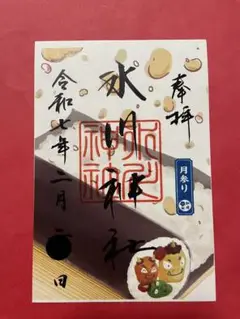 奉拝
月参り
氷川神社
氷川神社
令和七年二月 日